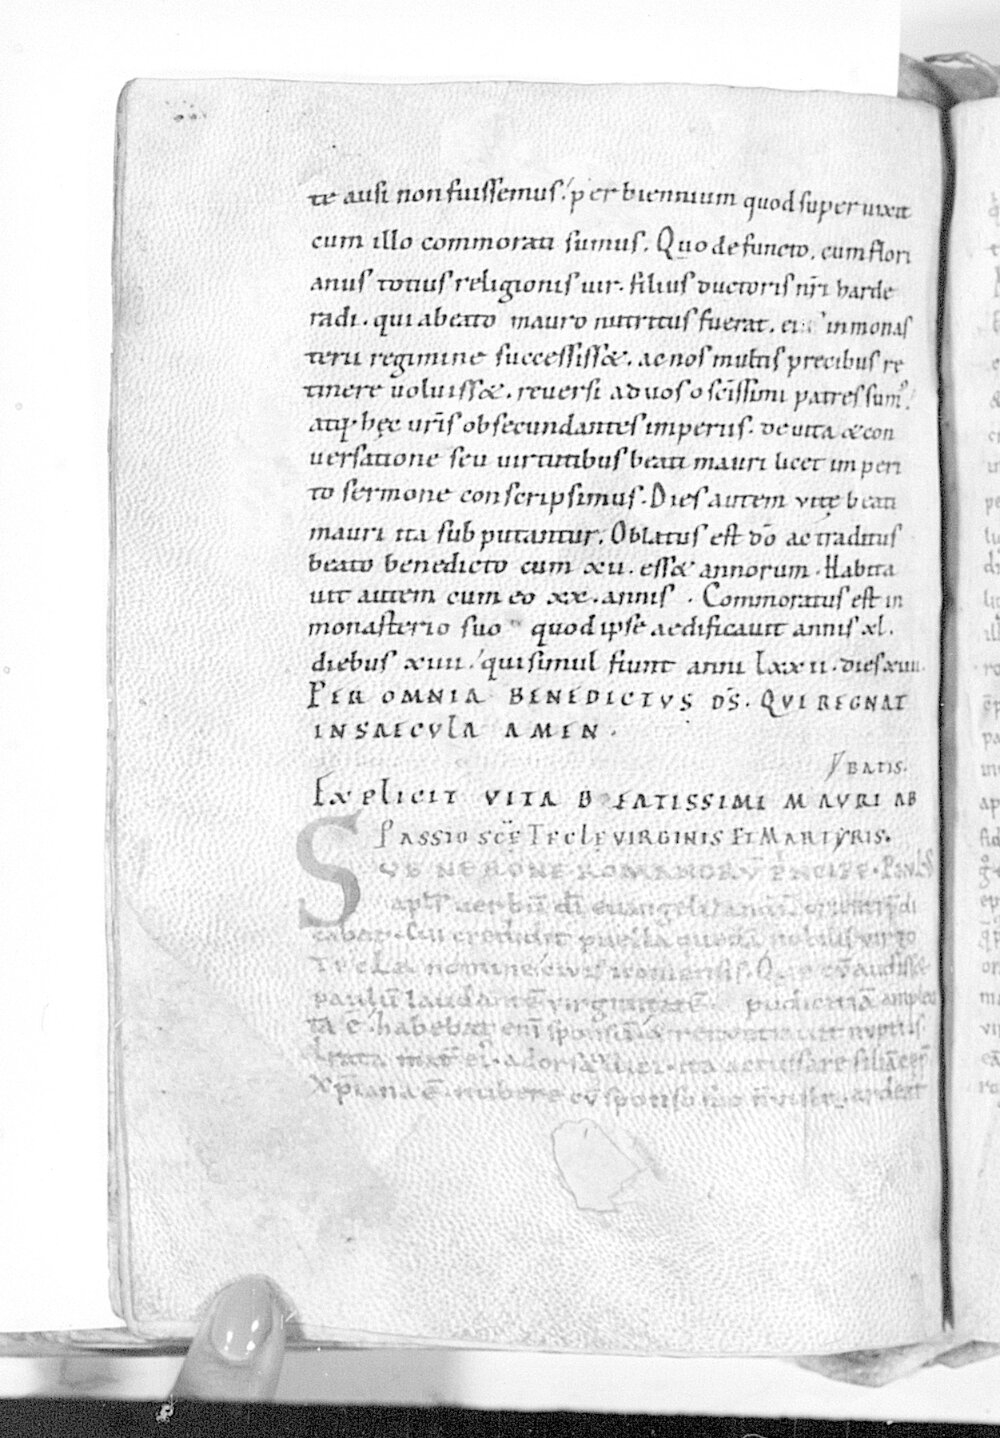 te ausi non fuissemus. per biennium quod supervixit
cum illo commorati sumus. Quo defuncto, cum flori
anus totius religionis uir. filius ductoris nr̄i harde
radi. qui a beato mauro nutritus fuerat, ei in monas
terii regimine successiss&. ac nos multis precibus re
tinere uoluiss&. reuersi ad uos o sc̄issimi patres sum'.
atq; hęc ur̄is obsecundantes imperiis. de uita & con
uersatione seu uirtutibus beati mauri licet imperi
to sermone conscripsimus. Dies autem vitę beati
mauri ita subputantur. Oblatus est dō ac traditus
beato benedicto cum xii. ess& annorum. Habita
uit autem cum eo xx. annis. Commoratus est in
monasterio suo quod ipse aedificauit annis xl.
diebus xiiii. qui simul fiunt anni lxxii. dies xiiii.
PER OMNIA BENEDICTVS DS̄. QVI REGNAT
IN SAECVLA AMEN.
BATIS.
EXPLICIT VITA BEATISSIMI MAVRI AB
PASSIO SCĘ TECLE VIRGINIS ET MARTYRIS.
SVB NERONE ROMANORV̄ PRINCIPE. PAVLS
apl's uerbū dī euangelizand
cabat. Cui credidit puella quedā nobilis virgo
TECLA nomine civis iconiensis. Quę cū audiss&
paulū laudantē virginitatē pudicitiā amplexa
ta ē. habebat enī sponsū renontiauit nuptiis
mat̄ ei' ita accussare filiā
Xp̄iana ē. nubere cū sponso ardeat